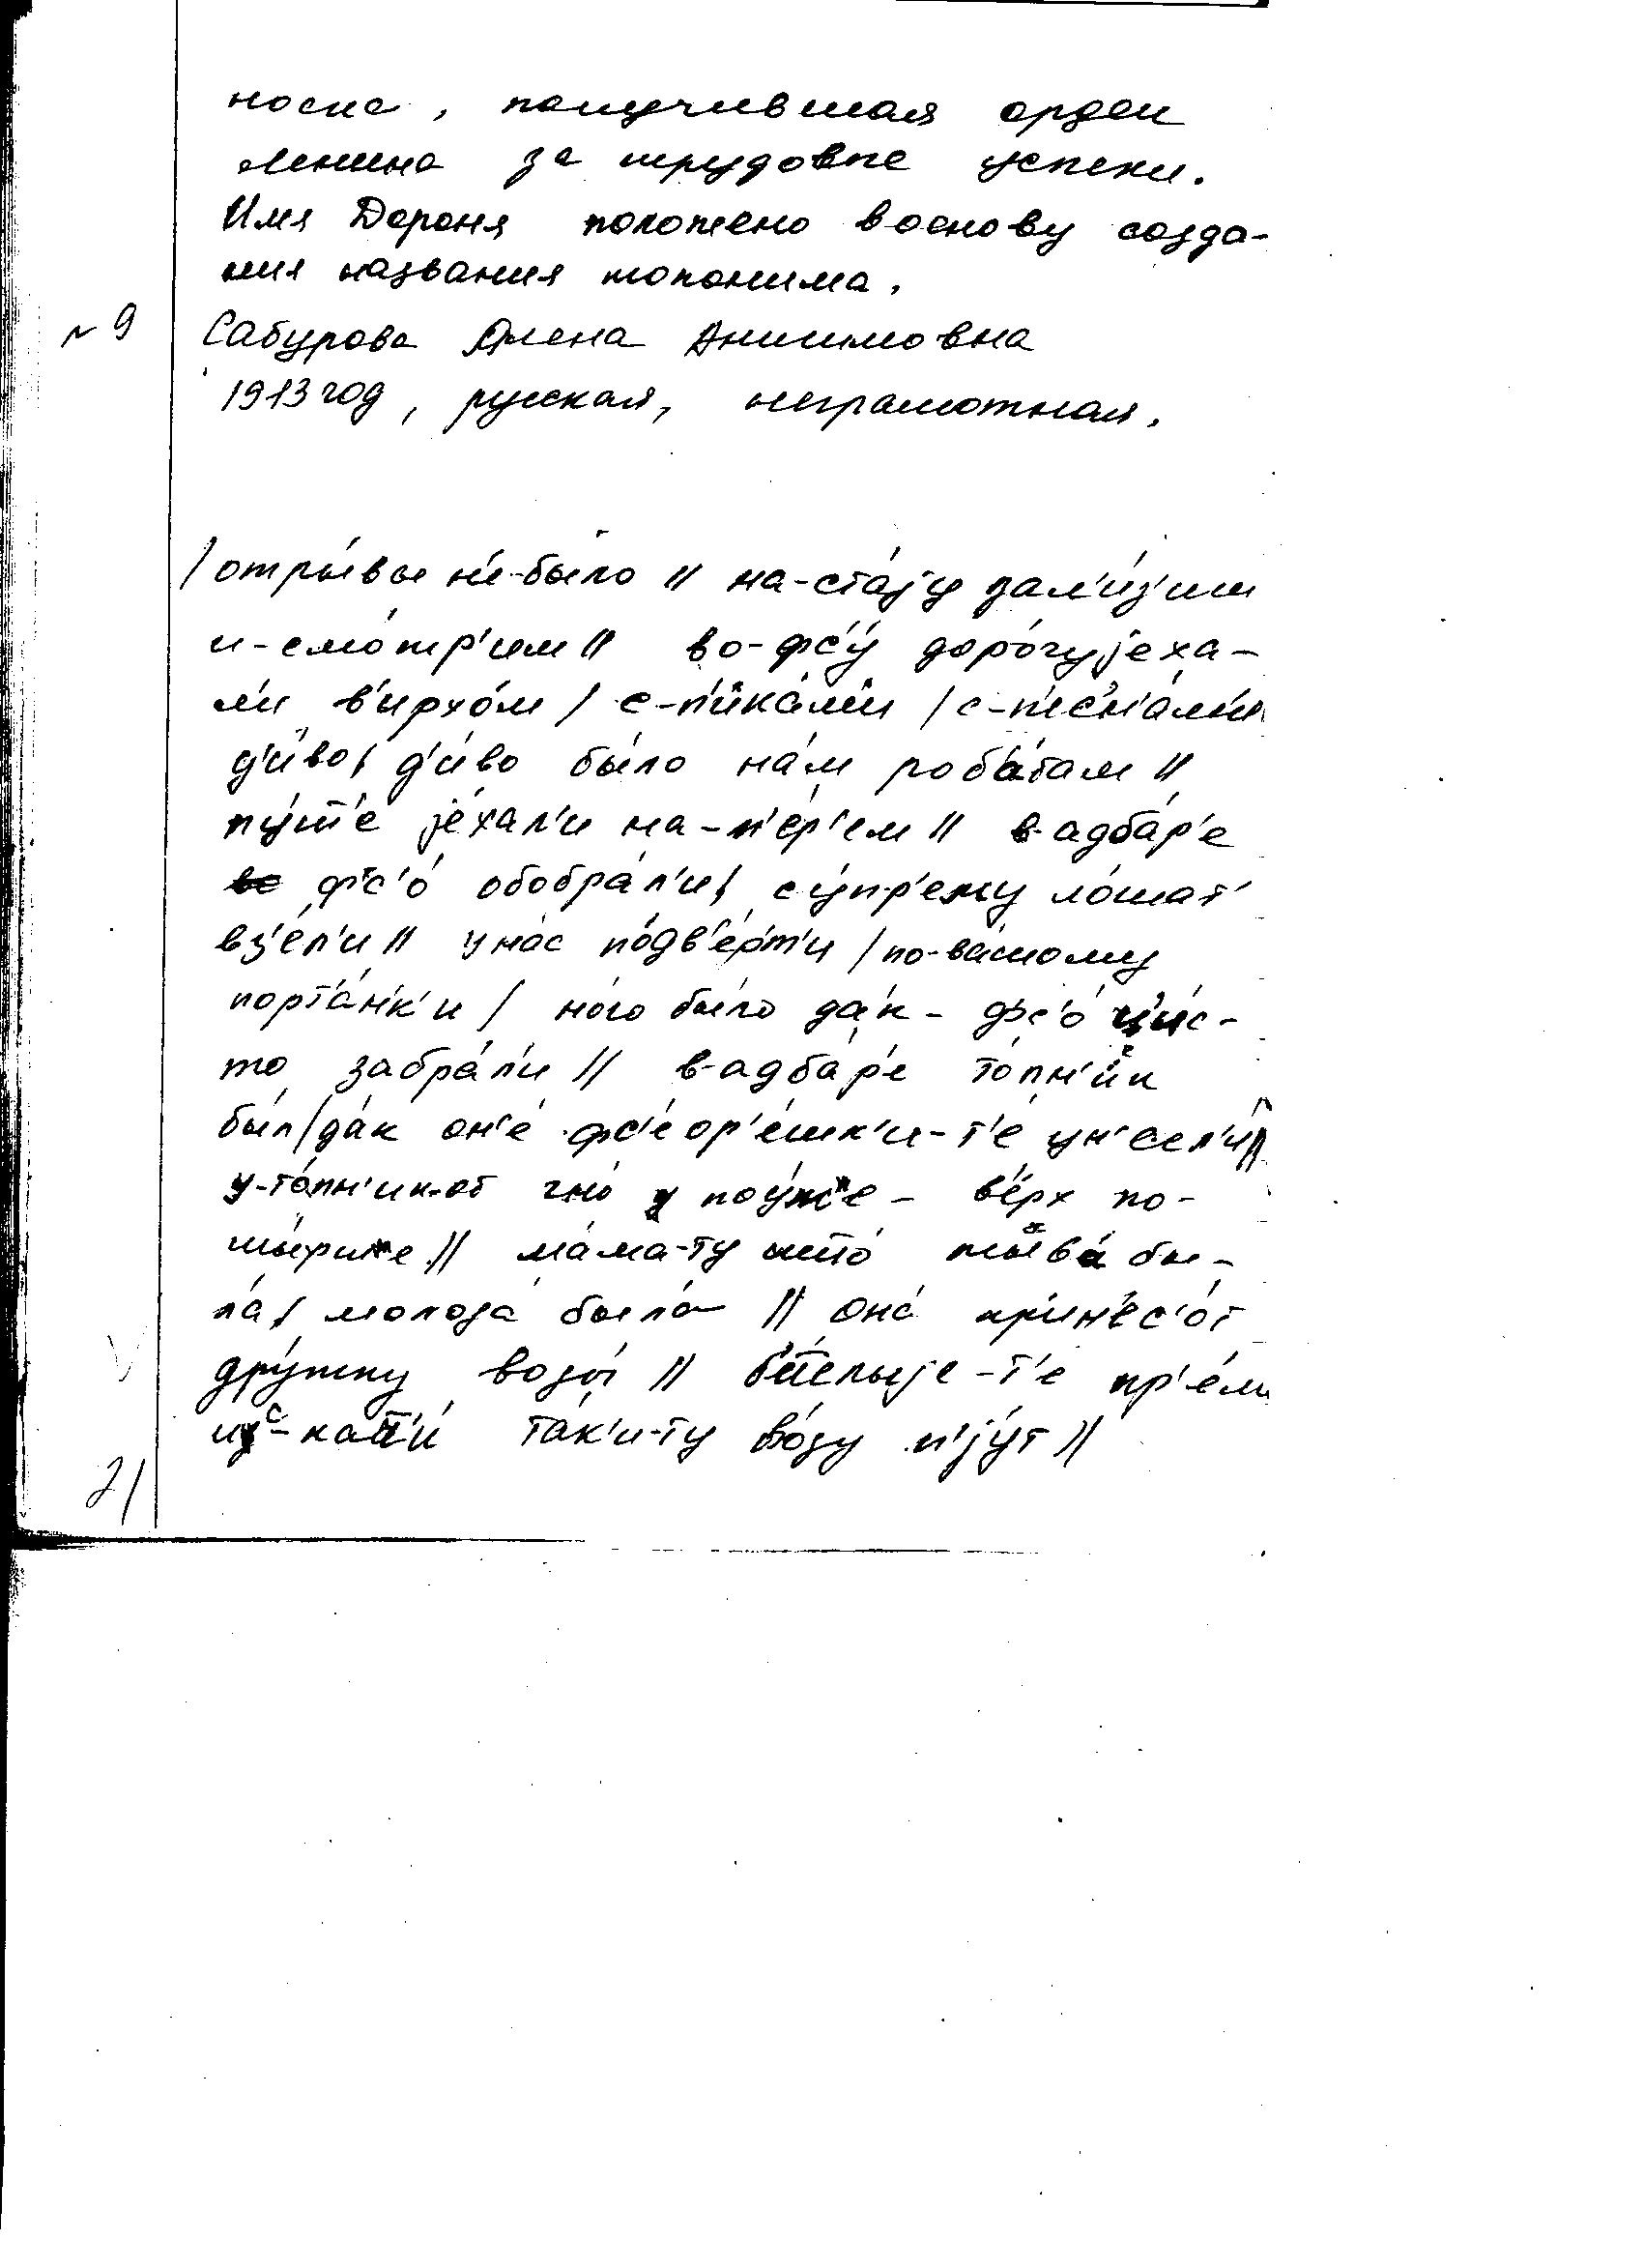 носка, получившая орден
Ленина за трудовые успехи.
Имя Дороня положено в основу созда-
ния названия топонима.
№ 9 Сабурова Алена Анисимовна
1913 год, русская, неграмотная.
/ отры́вы н'и́-было // на-ста́jу зал'и́з'им
и-смо́тр'им // во-фс'у́ доро́гу jеха-
л'и в'ирхо́м / с-п'и́кам'и / с-п'е́с'н'ам'и
д'и́во / д'и́во бы́ло на́м роб'а́там //
пу́шше jе́хал'и на-п'е́р'ем // в-адба́р'е
фс'о́ обобра́л'и / су́пр'ежу ло́шат'
вз'е́л'и // у на́с по́дв'ерт'и / по-ва́шому
порт'а́нк'и / но́го бы́ло да́к - фс'о́ ц'и́с-
то забра́л'и // в-адба́р'е то́пн'ик
бы́л / да́к он'е́ фс'е́ ор'е́шк'и-т'е ун'есл'и́ //
у-то́пн'ик-от гно́ поу́же - в'е́рх по-
шы́рише // ма́ма-ту што́ бы-
ла́ / молода́ была́ // она́ пр'ин'ес'о́т
дру́жку воды́ // б'е́лыjе-т'е пр'е́м
ис-кат'и́ та́к'и-ту во́ду п'jу́т //
21